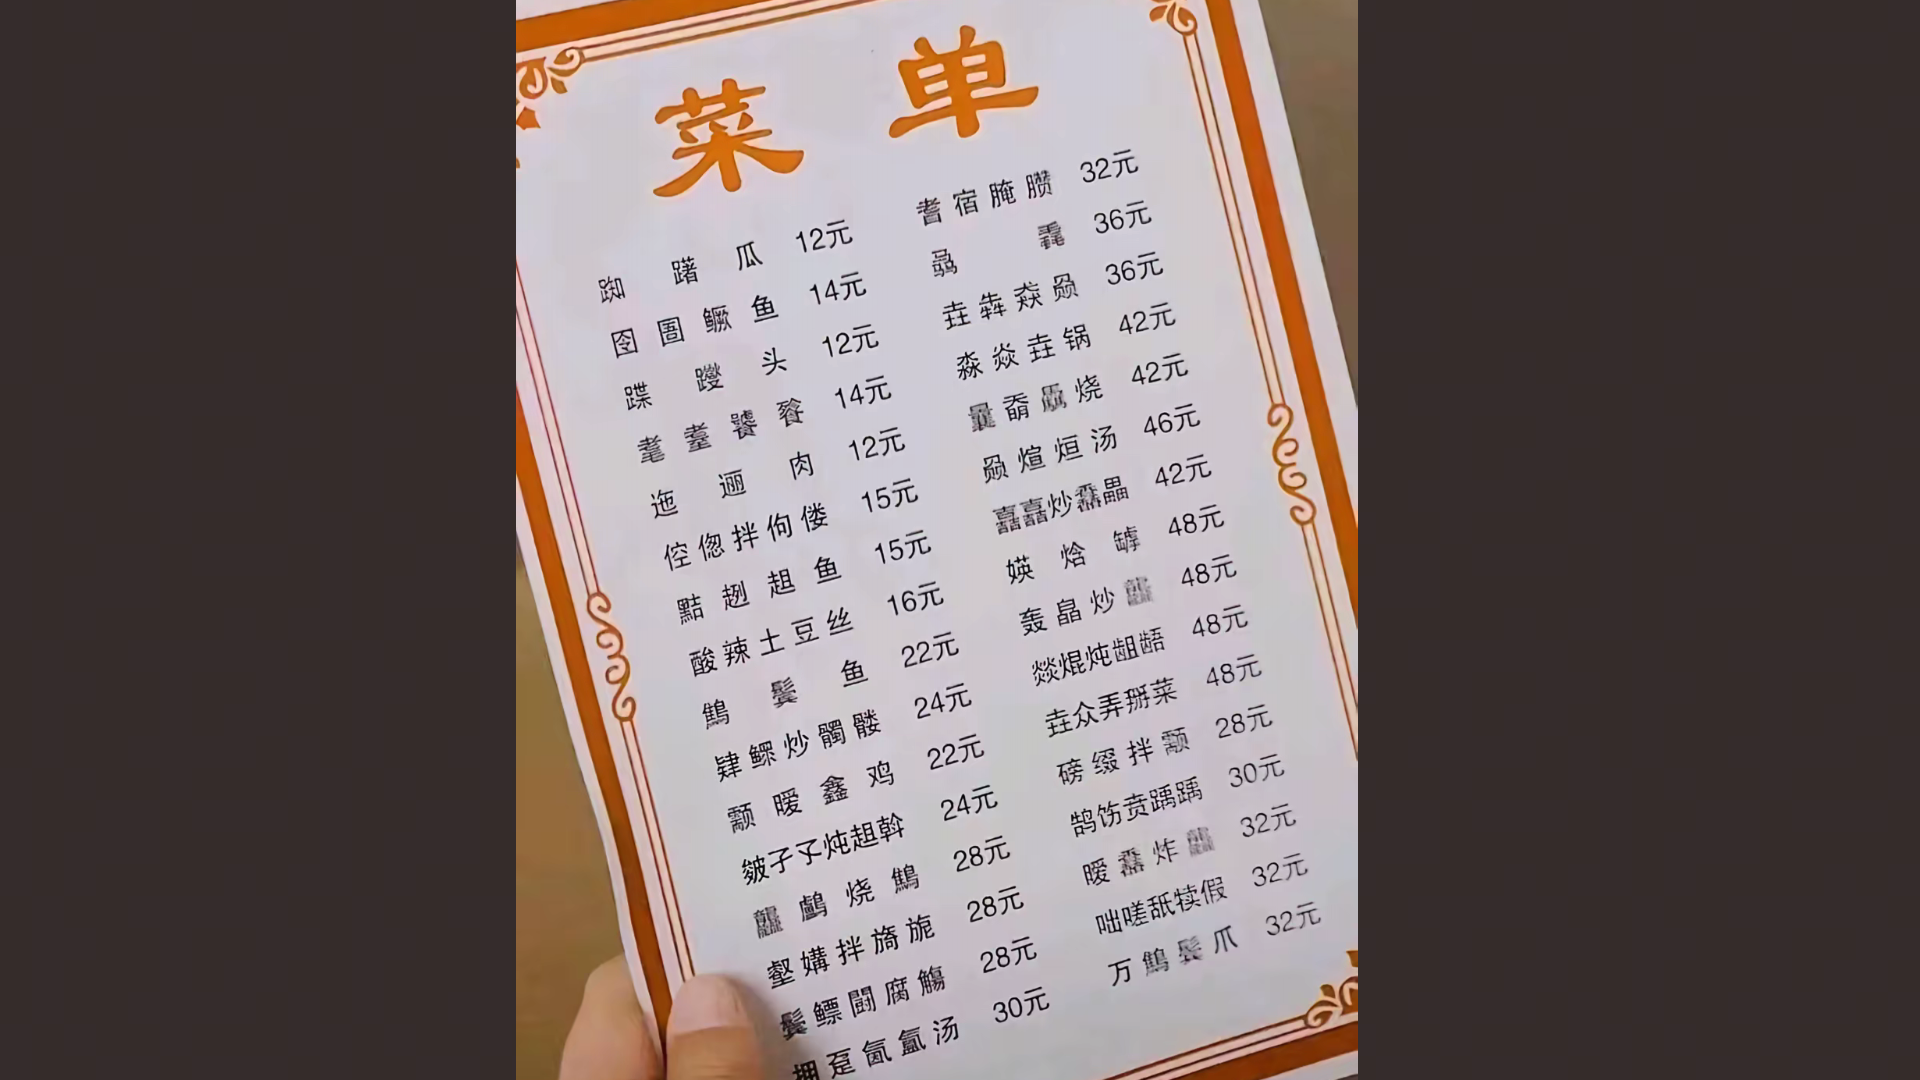 菜单
踟 躇 瓜 12元
囹 圄 鳜 鱼 14元
蹀 躞 头 12元
耄 耋 饕 餮 14元
迤 逦 肉 12元
倥 偬 拌 佝 偻 15元
趔 趄 鱼 15元
酸 辣 土 豆 丝 16元
鬓 鱼 22元
肄 鳏 炒 髑 髅 24元
颥 暧 鑫 鸡 22元
皴 孑 孓 炖 趄 斡 24元
龘 烧 28元
壑 媾 拌 旖 旎 28元
鬓 鳔 闘 腐 觞 28元
趸 氤 氲 汤 30元
耆 宿 腌 臜 32元
骉 毳 36元
垚 犇 猋 赑 36元
淼 焱 垚 锅 42元
曩 奣 烧 42元
赑 煊 烜 汤 46元
嚞 嚞 炒 馫 畾 42元
媖 焓 罅 48元
轰 皛 炒 龘 48元
燚 焜 炖 龃 龉 48元
垚 众 弄 掰 菜 48元
磅 缀 拌 颥 28元
鹄 饬 贲 踽 踽 30元
暧 馫 炸 龘 32元
咄 嗟 舐 犊 假 32元
万 鬓 爪 32元